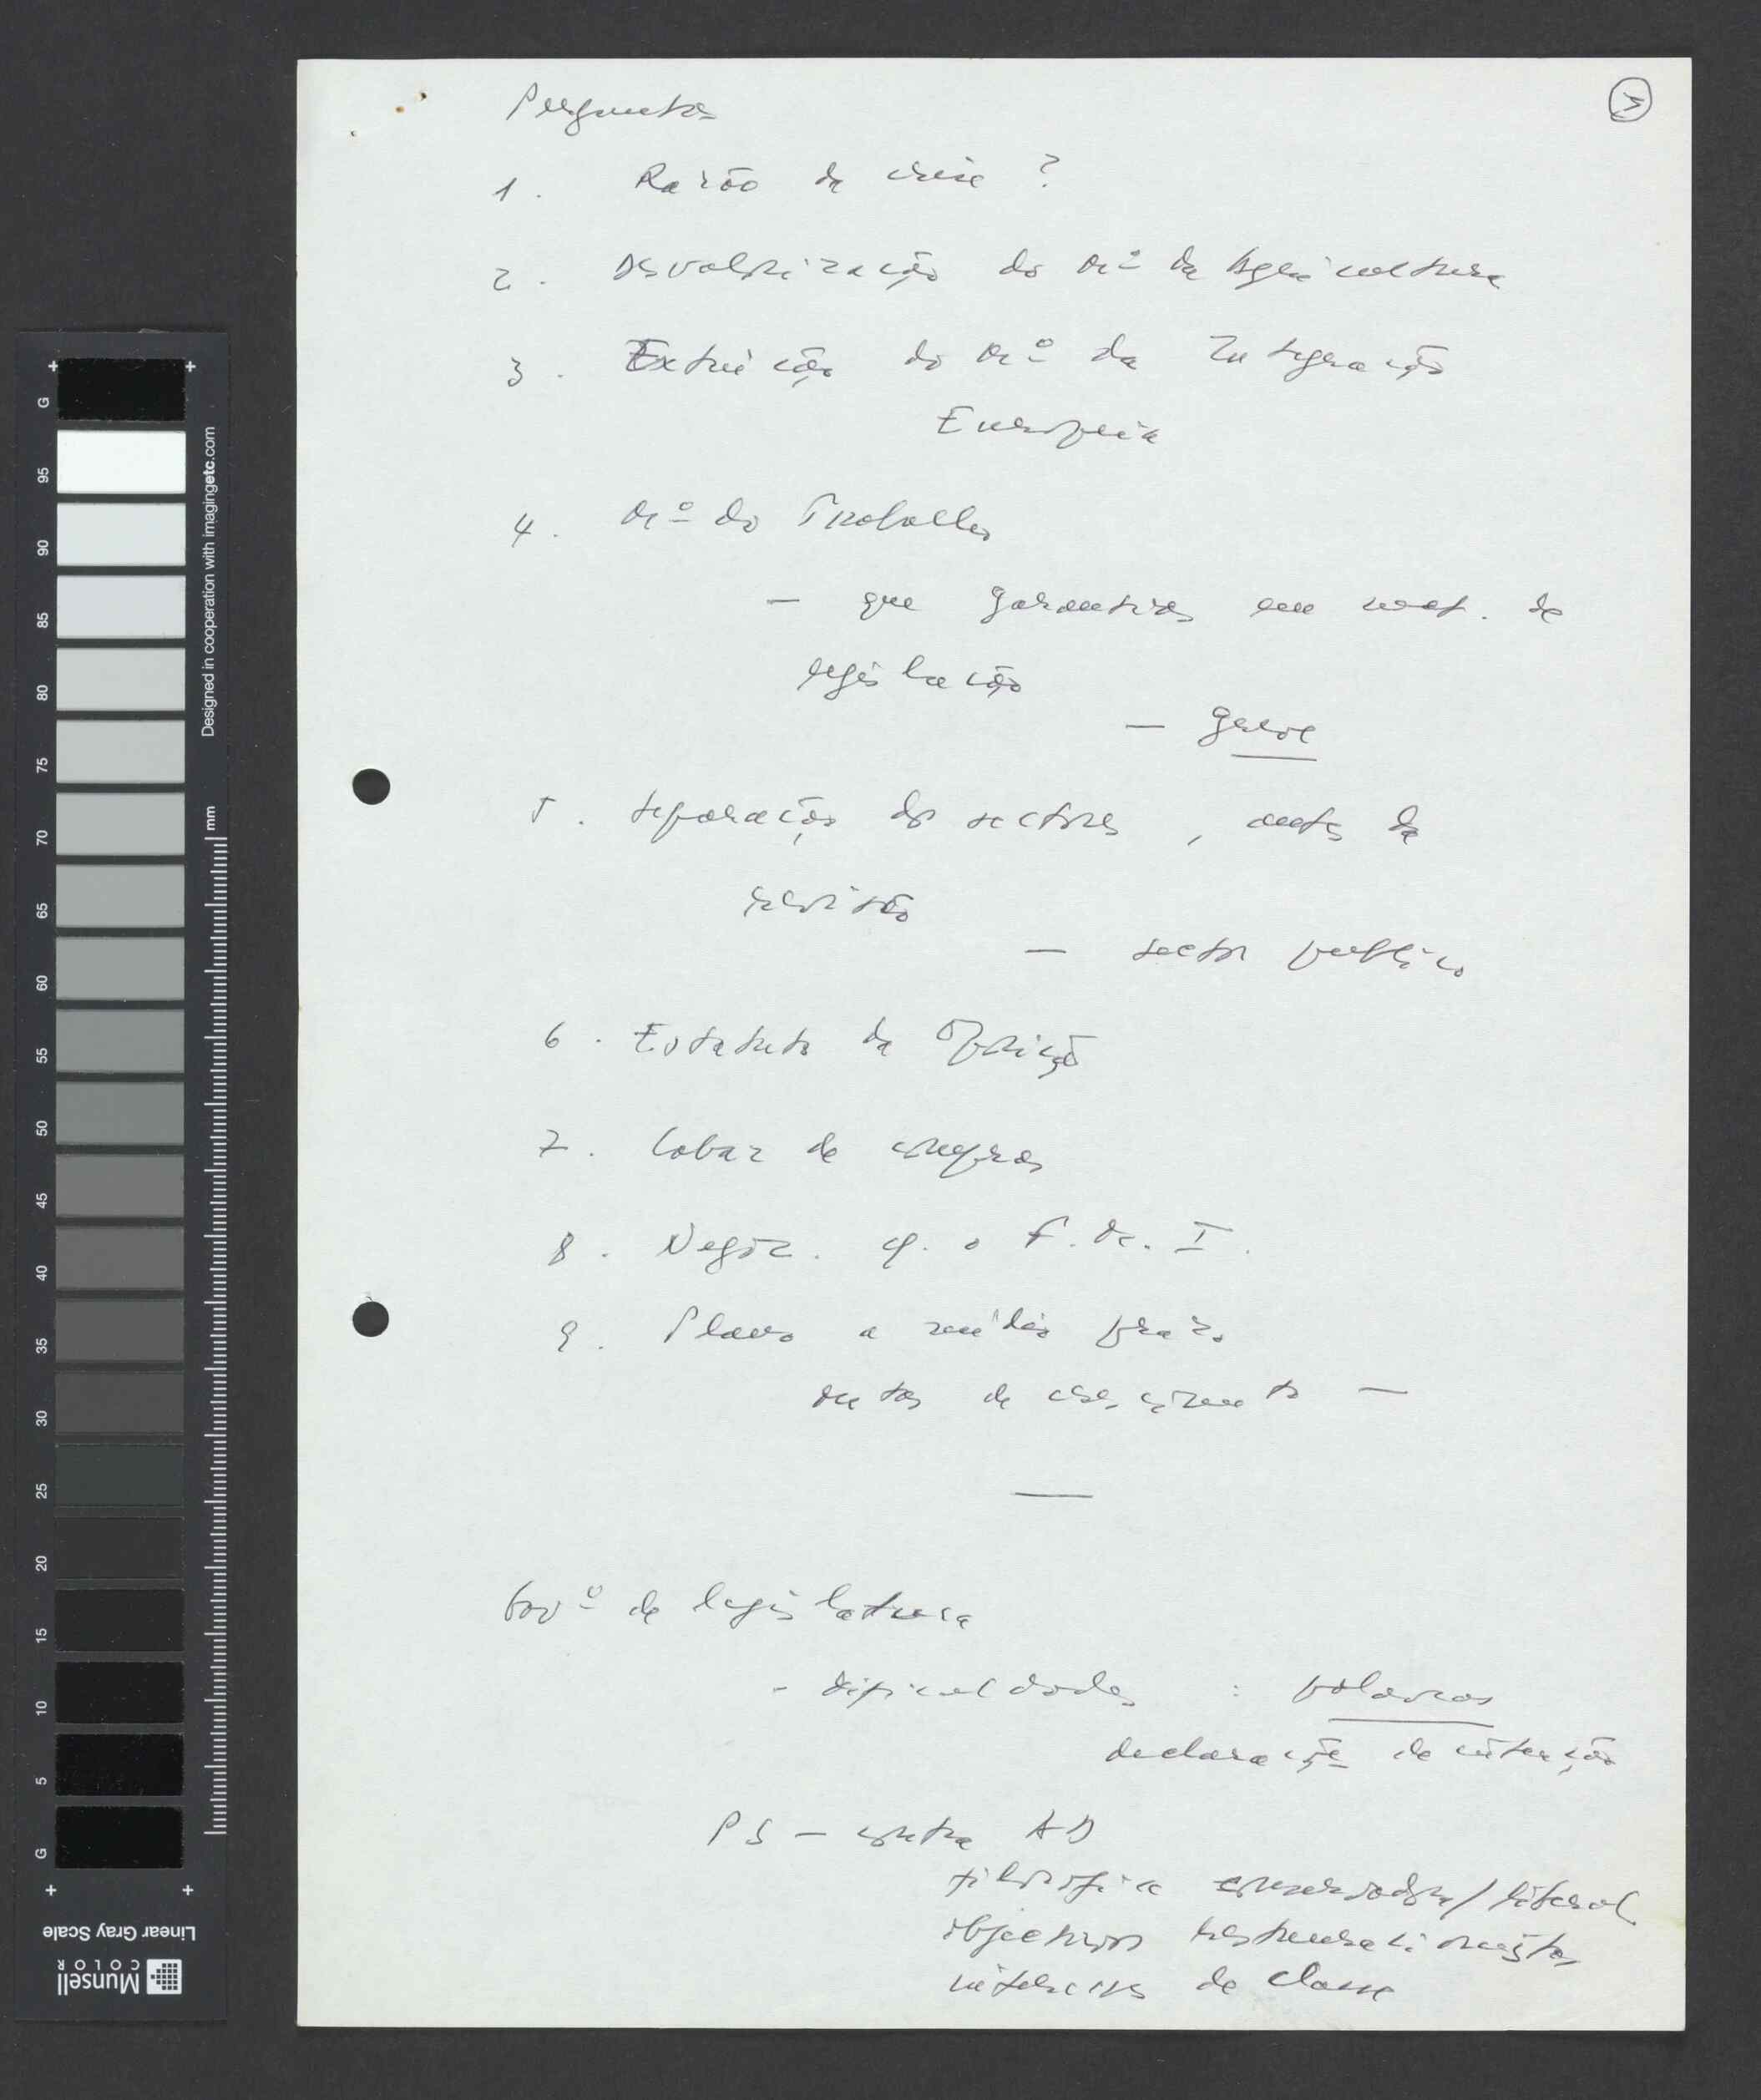 Perguntas
5
1. Razão da crise ?
2. Desvalorização do Mº da Agricultura
3. Extinção do Mº da Integração
Europeia
4. Mº do Trabalho
- que garantias em mat. de
legislação
- greve
5. Separação dos sectores, antes da
revisão
- sector publico
6. Estatuto da Oposição
7. Cabaz de compras
8. Negoc. c/. o F.M.I.
9. Plano a médio prazo
metas de crescimento —
Govº de legislatura
- dificuldades : palavras
declaração de intenção
PS - contra AD
filosofia conservadora/liberal
objectivos restauracionistas
interesses de classe
G 95 90 85 80 75 70 65 60 55 50 45 40 35 30 25 20 15 10 5 G
Designed in cooperation with imagingetc.com
mm
Linear Gray Scale
Munsell
COLOR